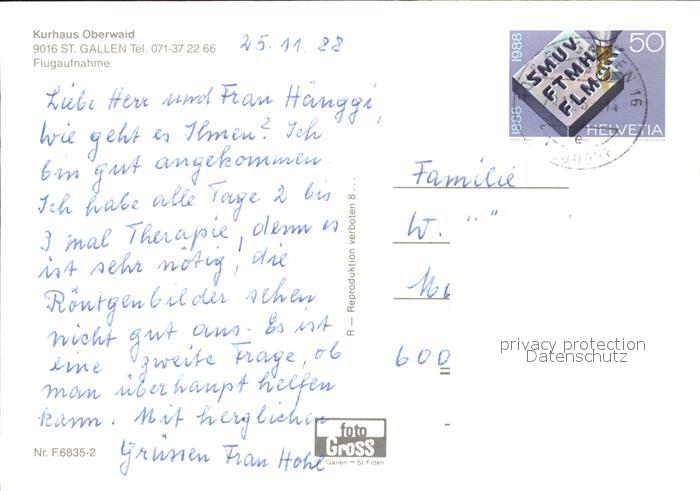 Kurhaus Oberwaid
9016 ST. GALLEN Tel. 071-37 22 66
Flugaufnahme
25.11.88
Liebe Herr und Frau Hänggi,
wie geht es Ihnen? Ich
bin gut angekommen
Ich habe alle Tage 2 bis
3 mal Therapie, denn es
ist sehr nötig, die
Röntgenbilder sehen
nicht gut aus. Es ist
eine zweite Frage, ob
man überhaupt helfen
kann. Mit herzlichen
Grüssen Frau Hohl
Nr. F.6835-2
R — Reproduktion verboten 8....
foto
Gross
Gallen — St Fiden
1888 1988
50
SMUV
FTMH
FLM
HELVETIA
16
Familie
W. " "
600
privacy protection
Datenschutz